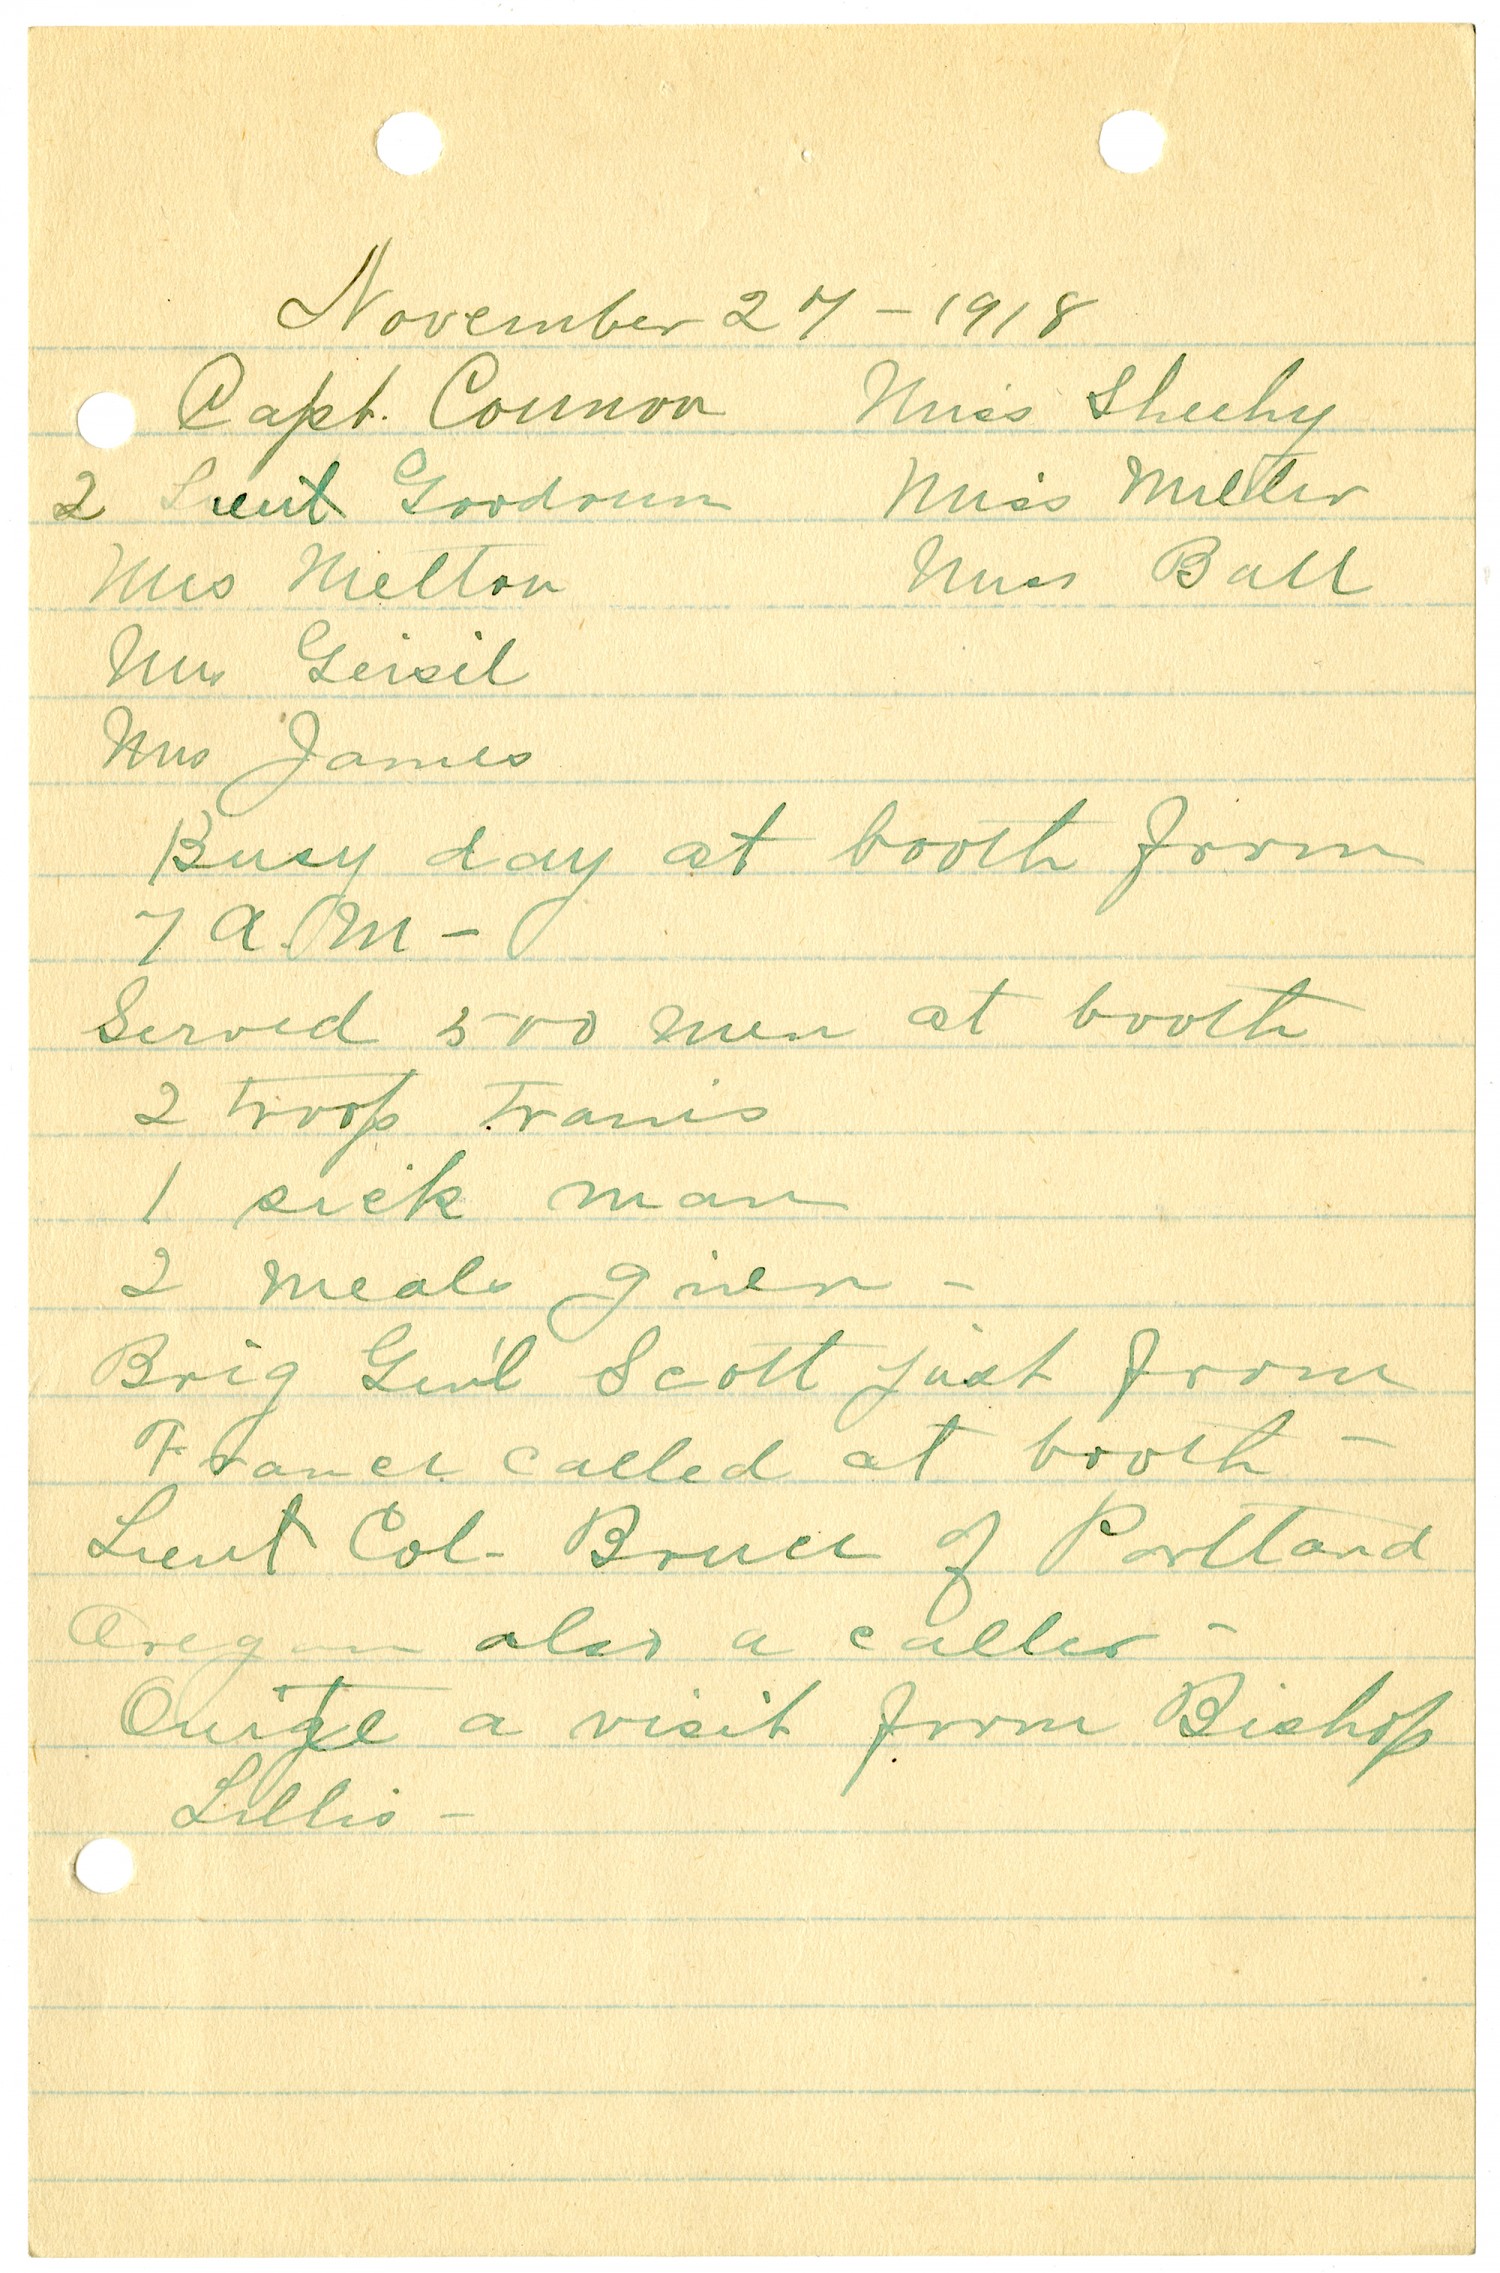 November 27 - 1918
Capt. Connor Miss Sheehy
2 Lieut Goodrum Miss Miller
Mrs Melton Miss Ball
Mrs Geisil
Mrs James
Busy day at booth from
7 A.M -
Served 500 men at booth
2 troop trains
1 sick man
2 meals given -
Brig Gen'l Scott just from
France called at booth -
Lieut Col - Bruce of Portland
Oregon also a caller -
Quite a visit from Bishop
Lillis -